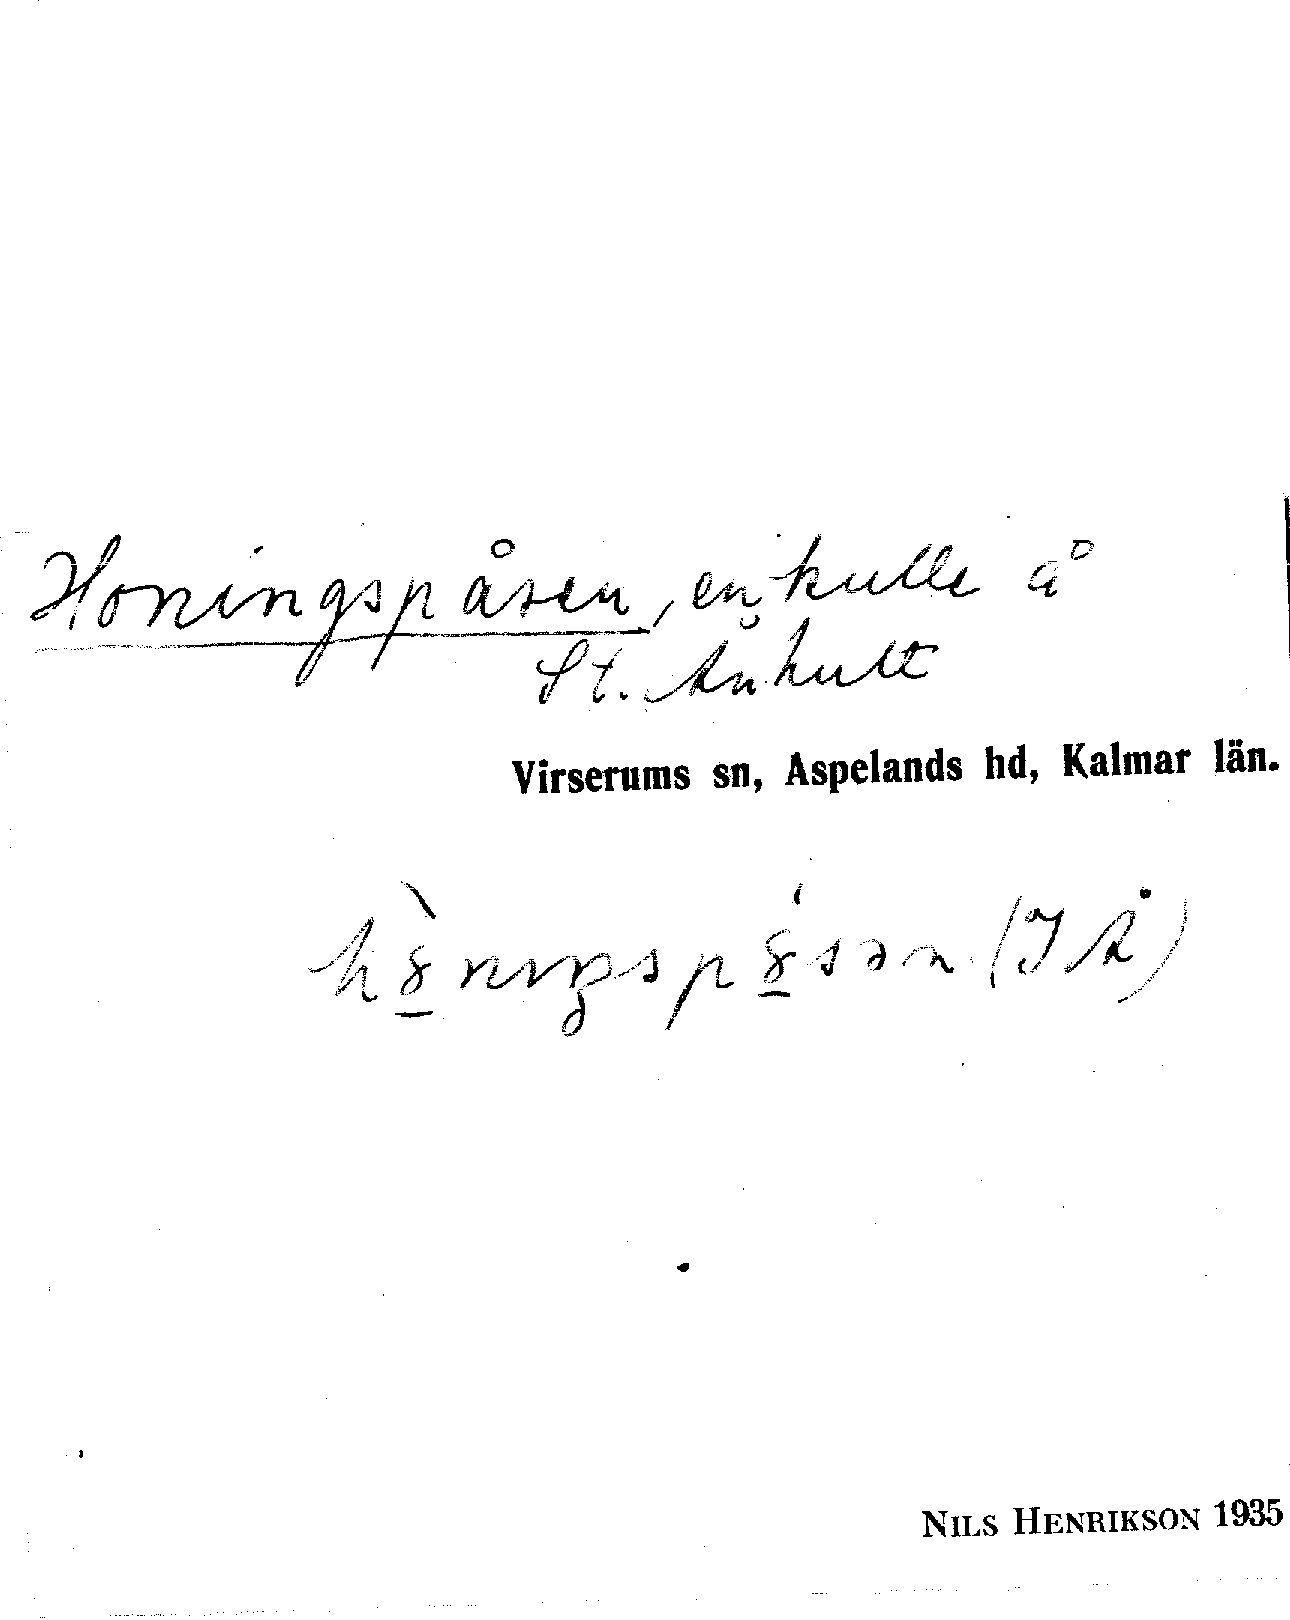 Honingspåsen, en kulle å
St. Ånhult
Virserums sn, Aspelands hd, Kalmar län.
(I Å)
NILS HENRIKSON 1935